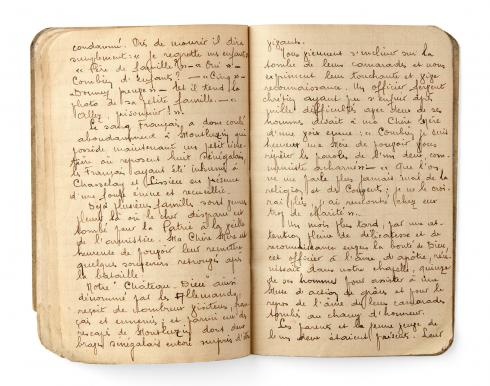 condamné. Près de mourir il dira
simplement : « Je regrette mes enfants
« Père de famille ? » — « Oui »
Combien d'enfants ? — « Cinq » —
Donney — Et il tend la
photo de sa petite famille. — «
Allez, prisonnier ! ».
Le sang Français, a donc coulé
abondamment à Montluzin qui
possède maintenant un petit
où reposent huit Sénégalais,
les Français ayant été inhumés à
Chasselay et Lissieu en présence
d'une foule émue et recueillie.
Déjà plusieurs familles sont venues
pleurer là où le cher disparu est
tombé pour la Patrie à la veille
de l'armistice. Ma Chère Mère est
heureuse de pouvoir leur remettre
quelques souvenirs retrouvés après
la bataille.
Notre "Château-Dieu" ainsi
dénommé par les Allemands,
reçoit de nombreux visiteurs, fran-
çais et ennemis, et parmi eux des
rescapés de Montluzin dont deux
braves sénégalais encore surpris d'être
vivants.
Tous viennent s'incliner sur la
tombe de leurs camarades et nous
expriment leur touchante et
reconnaissance. Un officier sergent
chrétien ayant pu s'enfuir après
mille difficultés avec deux de ses
hommes disait à ma Chère Mère
d'une voix émue : « Combien je suis
heureux ma Mère de pouvoir vous
répéter les paroles de l'un deux com-
muniste acharné — « Que l'on
ne me parle plus jamais mal de la
religion et du Couvent ; je ne le croi-
rai plus, j'ai rencontré chez eux
trop de charité ».
Un mois plus tard, par une at-
tention pleine de délicatesse et de
reconnaissance envers la bonté de Dieu,
cet officier à l'âme d'apôtre, réu-
nissait dans notre chapelle, quinze
de ses hommes pour assister à une
Messe d'action de grâces et pour le
repos de l'âme de leurs camarades
tombés au champ d'honneur.
Les parents et la jeune de
l'un deux étaient présents. Leur